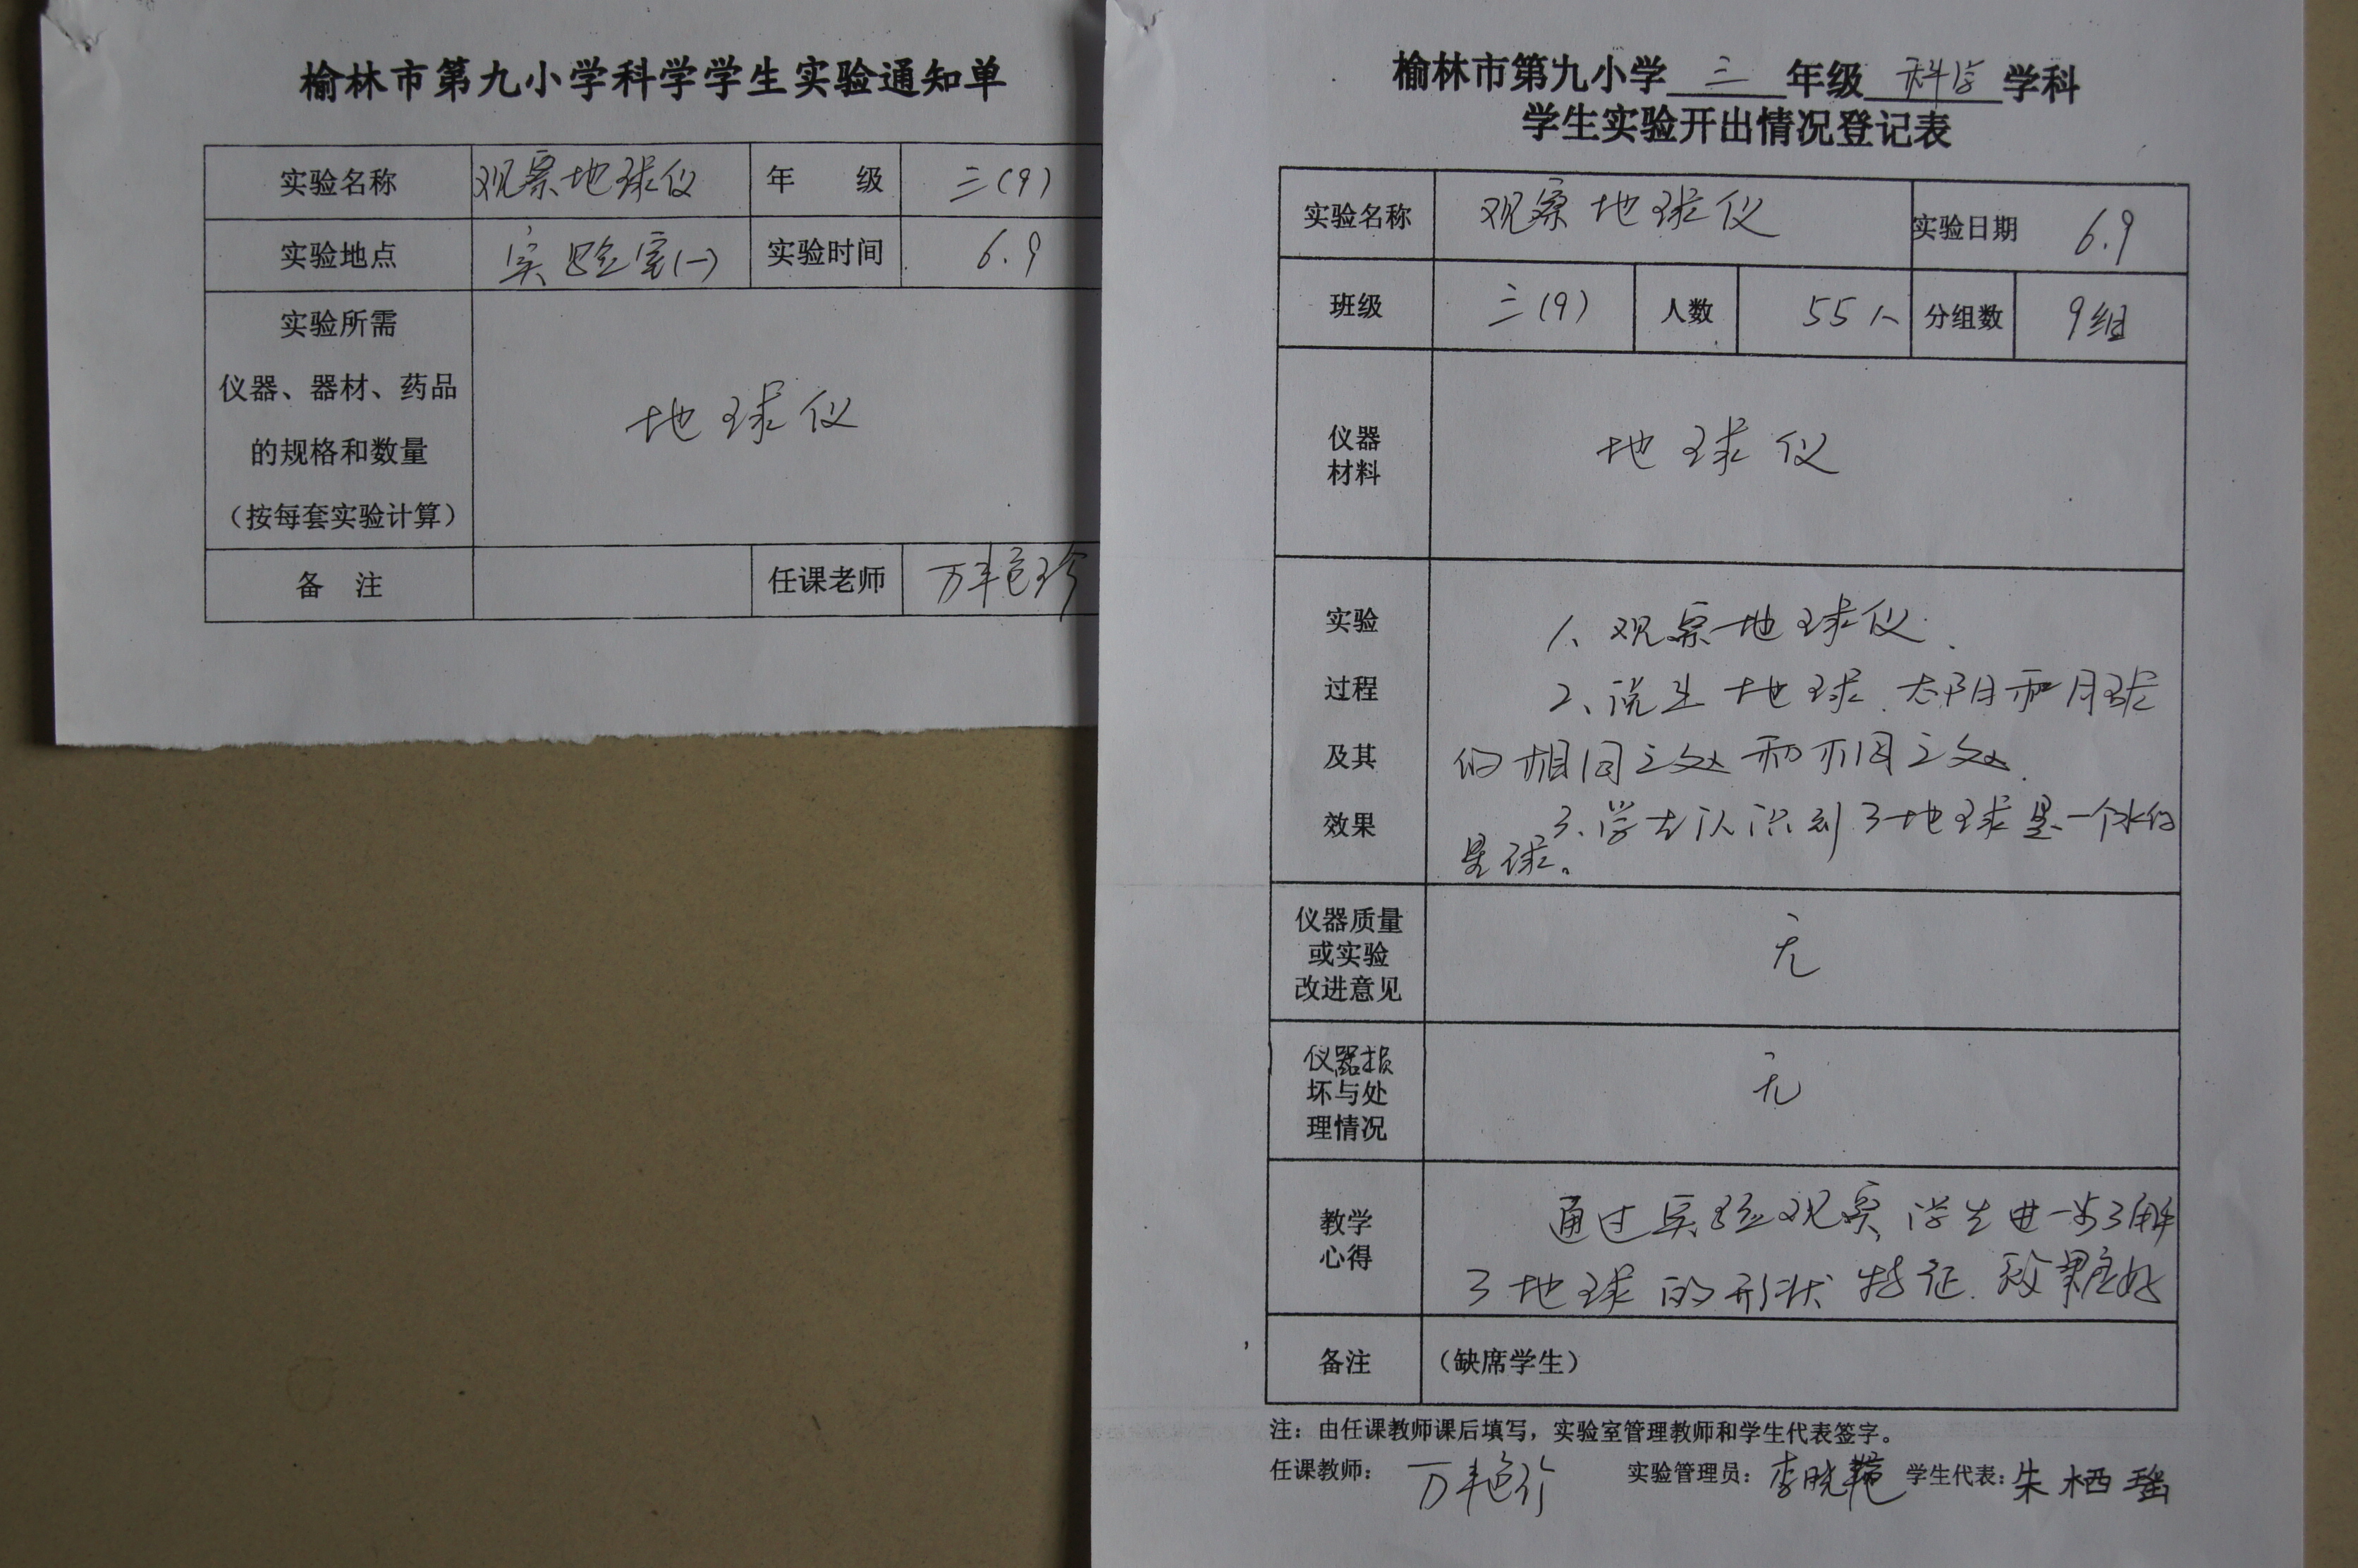 榆林市第九小学科学学生实验通知单
实验名称 观察地球仪 年 级 三(9)
实验地点 实验室(一) 实验时间 6.9
实验所需
仪器、器材、药品
的规格和数量
（按每套实验计算）
地球仪
备 注 任课老师 万艳珍
榆林市第九小学 三 年级 科学 学科
学生实验开出情况登记表
实验名称 观察地球仪 实验日期 6.9
班级 三(9) 人数 55人 分组数 9组
仪器
材料
地球仪
实验
过程
及其
效果
1、观察地球仪.
2、说出地球.太阳和月球
的相同之处和不同之处.
3、学生认识到了地球是一个水的
星球。
仪器质量
或实验
改进意见
无
仪器损
坏与处
理情况
无
教学
心得
通过实验观察,学生进一步了解
了地球的形状特征.效果良好
备注 （缺席学生）
注：由任课教师课后填写，实验室管理教师和学生代表签字。
任课教师： 万艳珍 实验管理员： 李晓艳 学生代表: 朱栖瑶